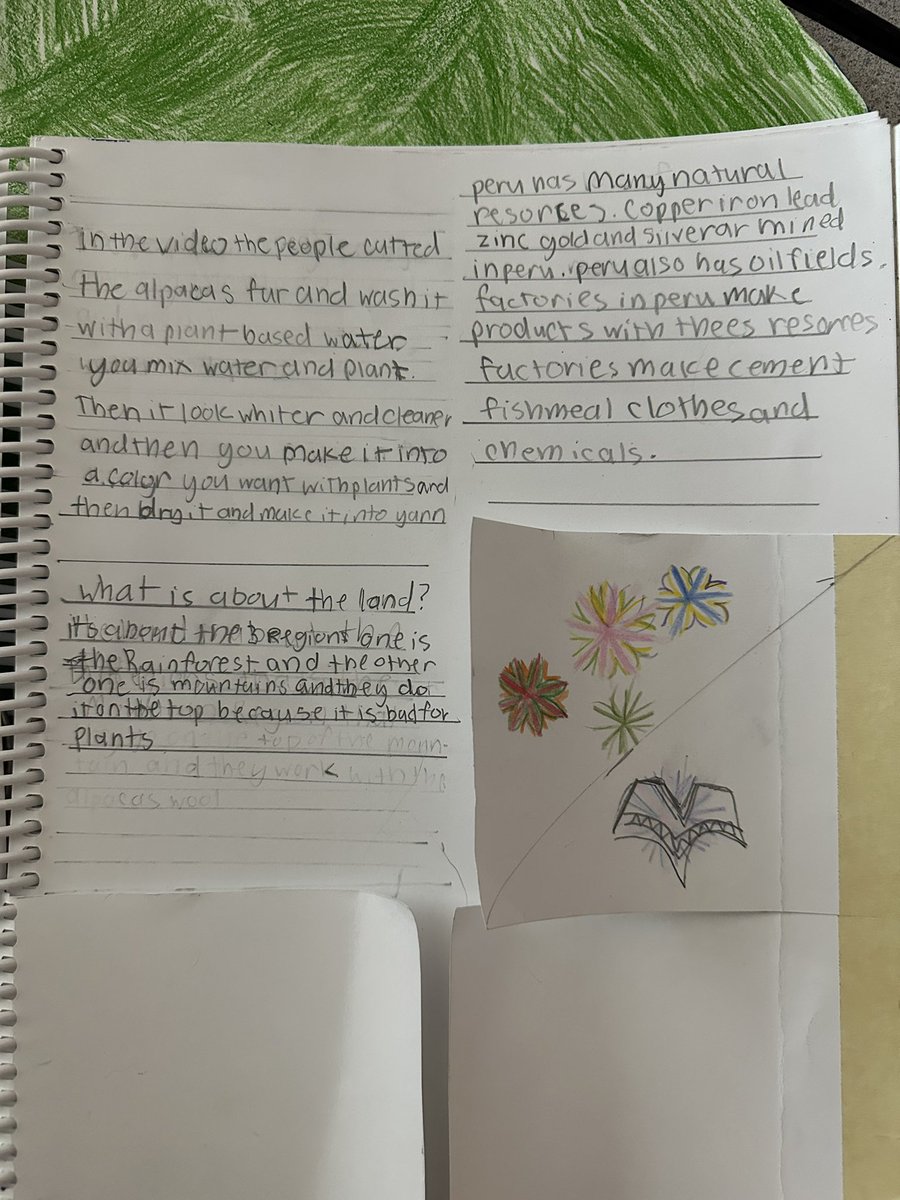 in the video the people cutted
the alpacas fur and wash it
with a plant based water
you mix water and plant.
Then it look whiter and cleaner
and then you make it into
a color you want with plants and
then dry it and make it into yarn
what is about the land?
it's about the regions one is
the Rainforest and the other
one is mountains and they do
it on the top because it is bad for
plants
top of the moun-
tain and they work with the
alpacas wool
peru has many natural
resorces. copper iron lead
zinc gold and silver ar mined
in peru. peru also has oil fields.
factories in peru make
products with thees resorres
factories make cement
fishmeal clothes and
chemicals.